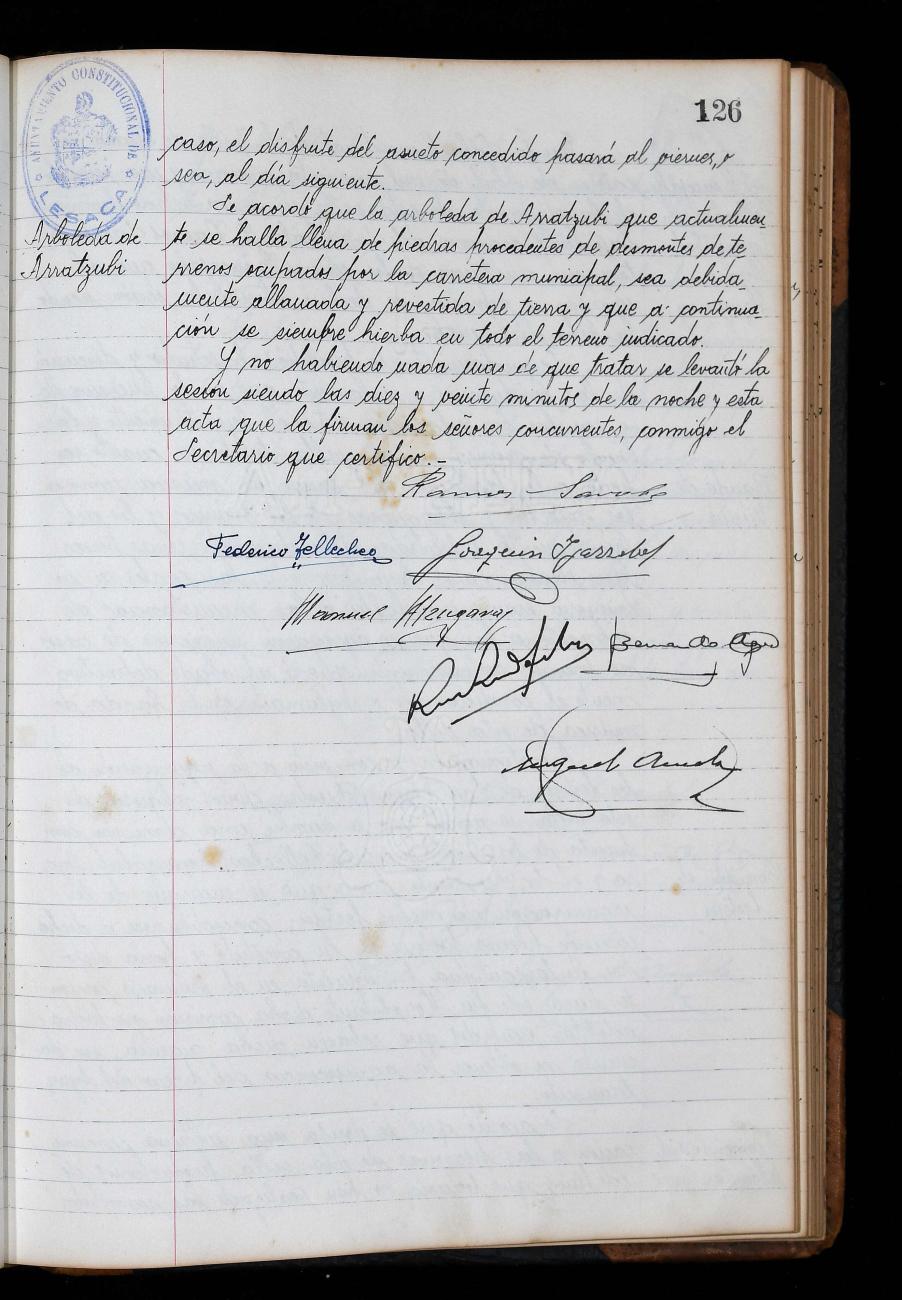 126
AYUNTAMIENTO CONSTITUCIONAL DE
LESACA
caso, el disfrute del asueto concedido pasará al viernes, o
sea, al día siguiente.
Arboleda de
Arratzubi
Se acordó que la arboleda de Arratzubi que actualmen-
te se halla llena de piedras procedentes de desmontes de te-
rrenos ocupados por la carretera municipal, sea debida-
mente allanada y revestida de tierra y que a continua-
ción se siembre hierba en todo el terreno indicado.
Y no habiendo nada mas de que tratar se levantó la
sesión siendo las diez y veinte minutos de la noche y esta
acta que la firman los señores concurrentes, conmigo el
Secretario que certifico.-
Ramon
Federico Tellechea
Joaquin
Manuel Alzugaray
Bernardo
Miguel